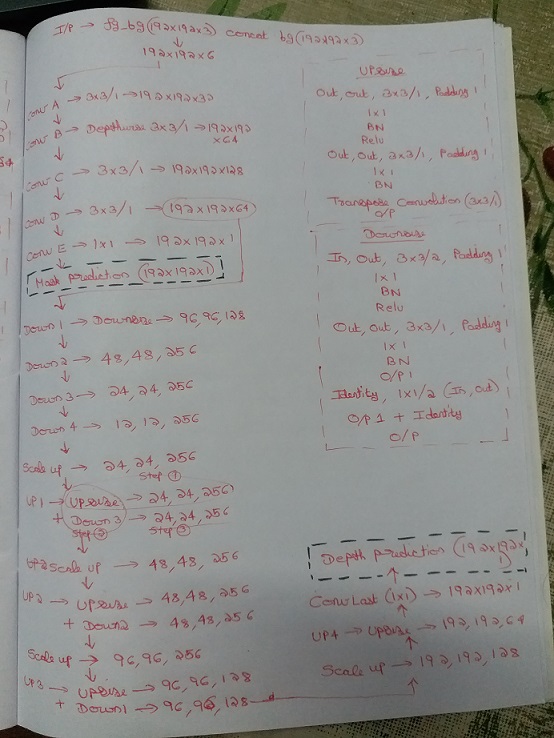 I/P → fg_bg(192x192x3) concat bg(192x192x3)
192x192x6
Conv A → 3x3/1 → 192x192x32
Conv B → Depthwise 3x3/1 → 192x192
x64
Conv C → 3x3/1 → 192x192x128
Conv D → 3x3/1 → 192x192x64
Conv E → 1x1 → 192x192x1
Mask prediction (192x192x1)
Down 1 → Downsize → 96, 96, 128
Down 2 → 48, 48, 256
Down 3 → 24, 24, 256
Down 4 → 12, 12, 256
Scale up → 24, 24, 256
Step ①
UP1 → Upsize → 24, 24, 256
+ Down 3 → 24, 24, 256
Step ② Step ③
UP2 Scale up → 48, 48, 256
UP2 → Upsize → 48, 48, 256
+ Down 2 → 48, 48, 256
Scale up → 96, 96, 256
UP3 → Upsize → 96, 96, 128
+ Down 1 → 96, 96, 128
Upsize
Out, out, 3x3/1, Padding 1
1x1
BN
Relu
Out, Out, 3x3/1, Padding 1
1x1
BN
Transpose Convolution (3x3/1)
O/P
Downsize
In, Out, 3x3/2, Padding 1
1x1
BN
Relu
Out, Out, 3x3/1, Padding 1
1x1
BN
O/P 1
Identity, 1x1/2 (In, Out)
O/P 1 + Identity
O/P
Depth prediction (192x192x
1)
Conv Last (1x1) → 192x192x1
UP4 → Upsize → 192, 192, 64
Scale up → 192, 192, 128